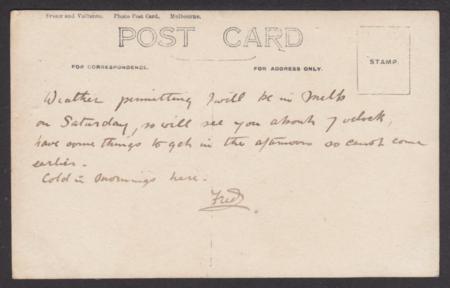 Frenx and Vulturno. Photo Post Card, Melbourne.
POST CARD
FOR CORRESPONDENCE.
FOR ADDRESS ONLY.
STAMP
Weather permitting I will be in Melb
on Saturday, so will see you about 7 oclock,
have some things to get in the afternoon so cannot come
earlier.
Cold in Mornings here.
Fred.